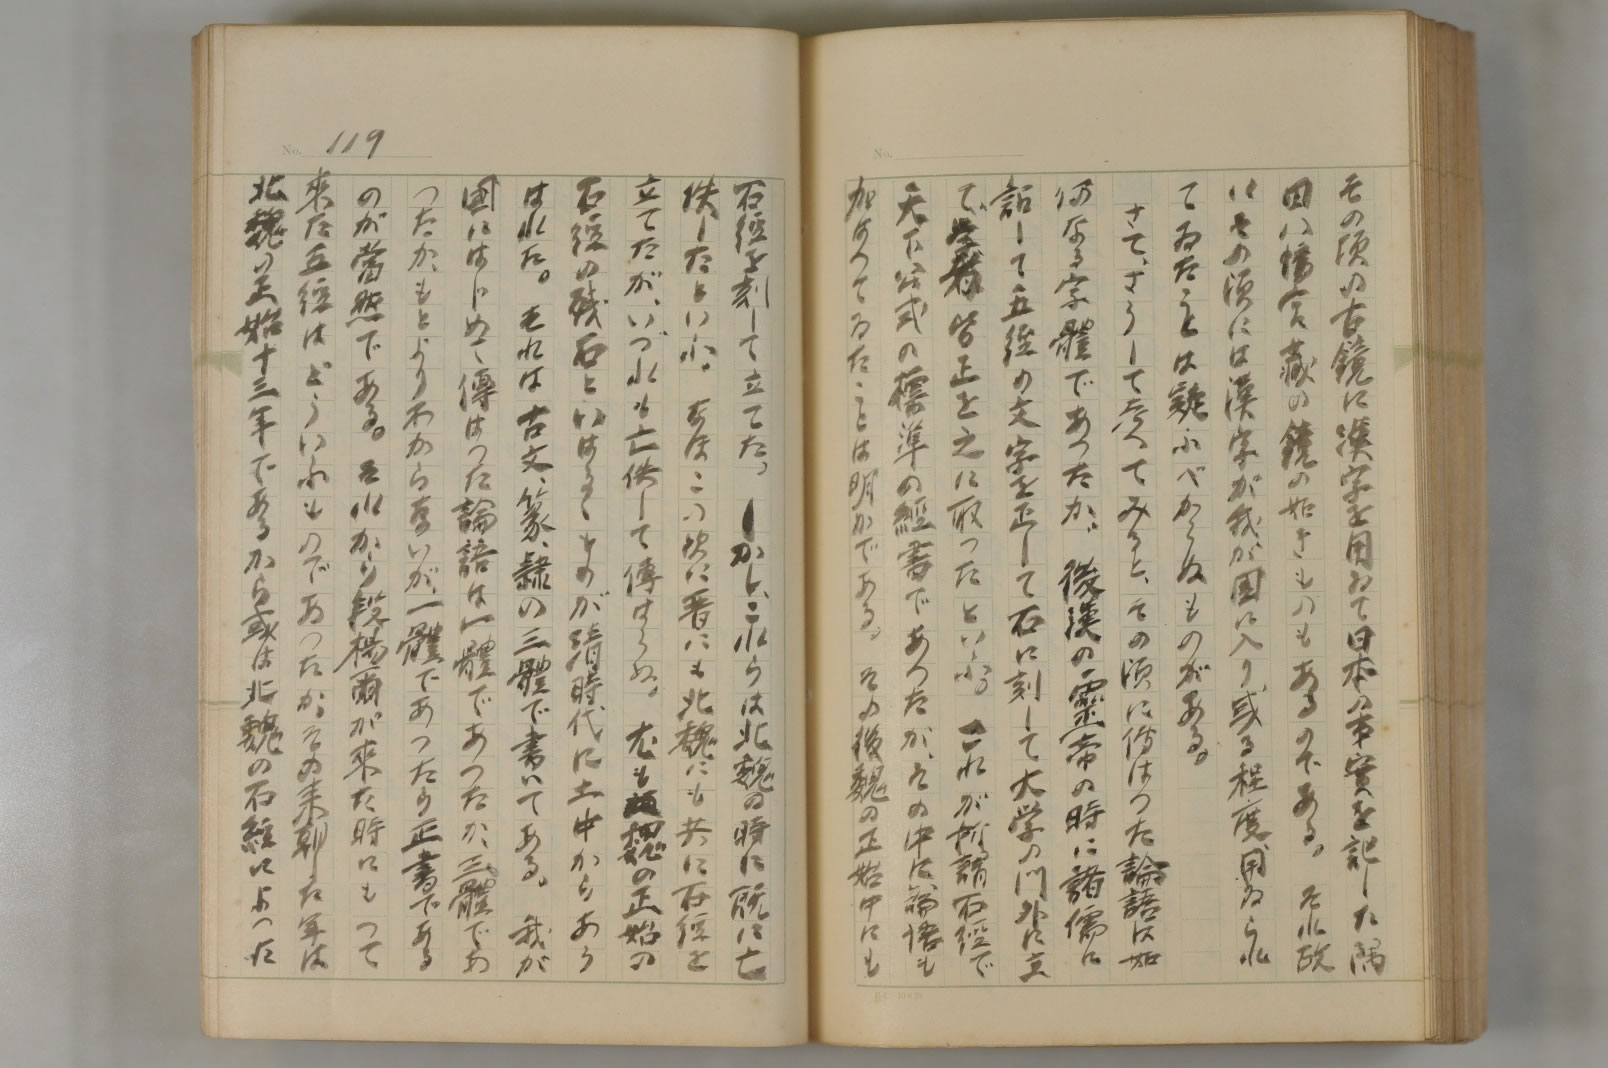 No.
その頃の古鏡に漢字を用ゐて日本の事實を記した隅
田八幡宮藏の鏡の如きものもあるのである。それ故
にその頃には漢字が我が国に入り或る程度用ゐられ
てゐたことは疑ふべからぬものがある。
さて、さうして考へてみると、その頃に傳はつた論語は如
何なる字體であつたか。後漢の靈帝の時に諸儒に
詔して五經の文字を正して石に刻して大学の門外に立
て皆正を之に取つたといふ。これが所謂石經で
天下公式の標準の經書であつたが、その中に論語も
加はつてゐたことは明かである。その後魏の正始中にも
No. 119
石經を刻して立てた。しかし、これらは北魏の時に既に亡
佚したといふ。なほこの外に晋にも北魏にも共に石經を
立てたが、いづれも亡佚して傳はらぬ。尤も魏の正始の
石經の残石といはるゝものが隋時代に土中からあら
はれた。それは古文、篆、隷の三體で書いてある。我が
國にはじめて傳はつた論語は一體であつたか、三體であ
つたか、もとよりわからないが、一體であつたら正書である
のが當然である。それから段楊爾が來た時にもつて
來た五經はどういふものであつたか。その来朝した年は
北魏の正始十三年であるから或は北魏の石經によつた
B.C. 10×20